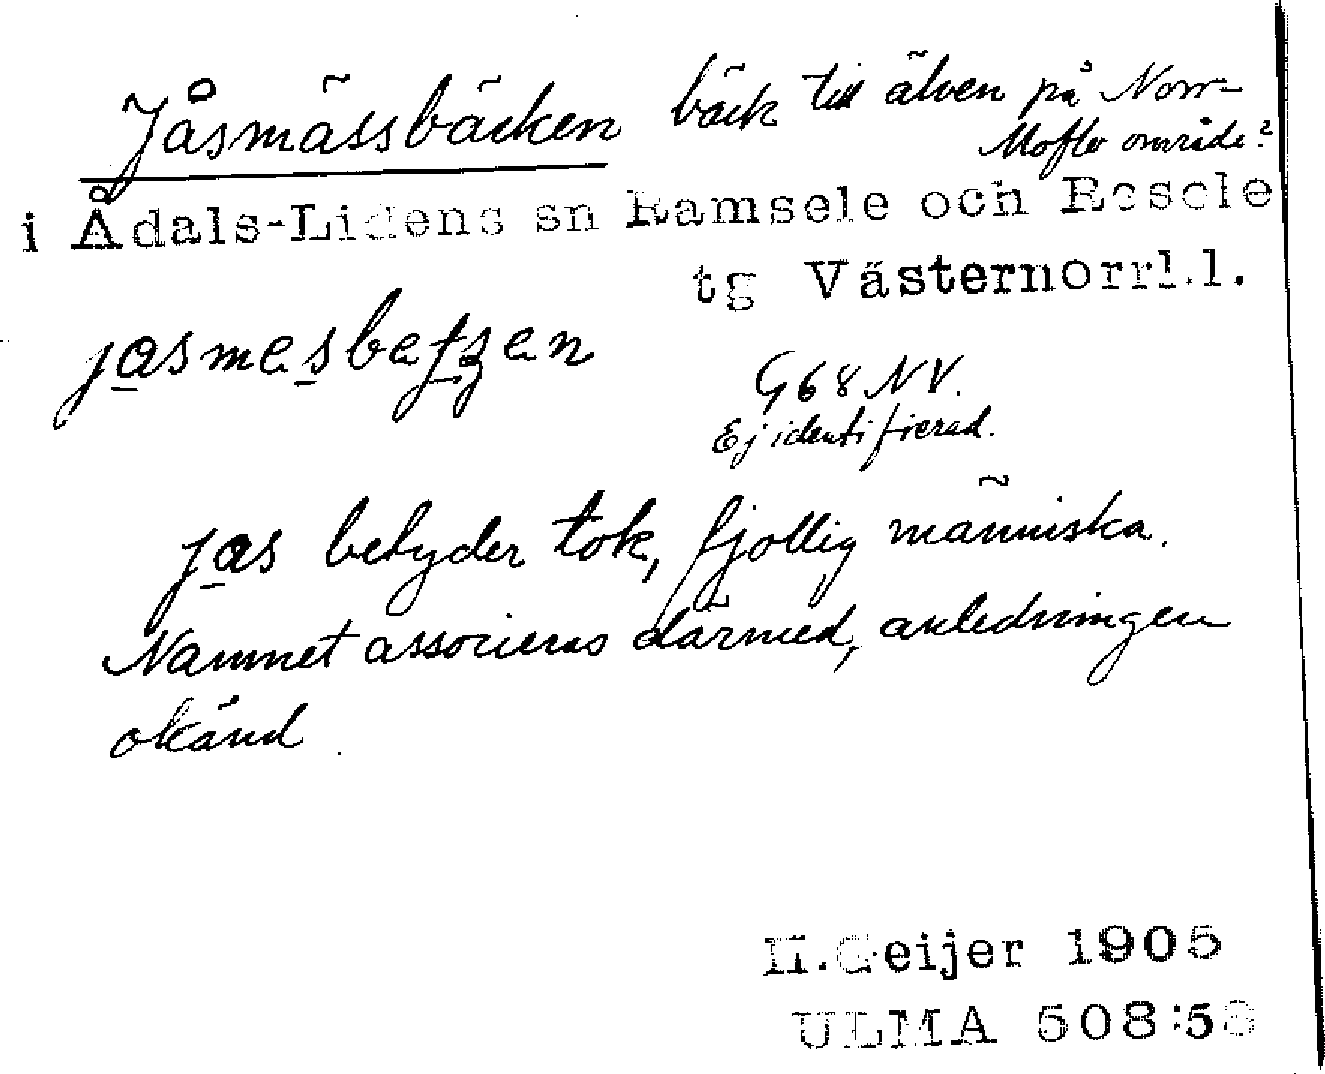 Jåsmässbäcken bäck till älven på Norr-
Mofler område?
i Ådals-Lidens sn Ramsele och Resele
tg Västernorrl.l.
jasmesbeken
G68 NV.
Ej identifierad.
jas betyder tok, fjollig människa.
Namnet associeras därmed, anledningen
okänd.
H.Geijer 1905
ULMA 508:58